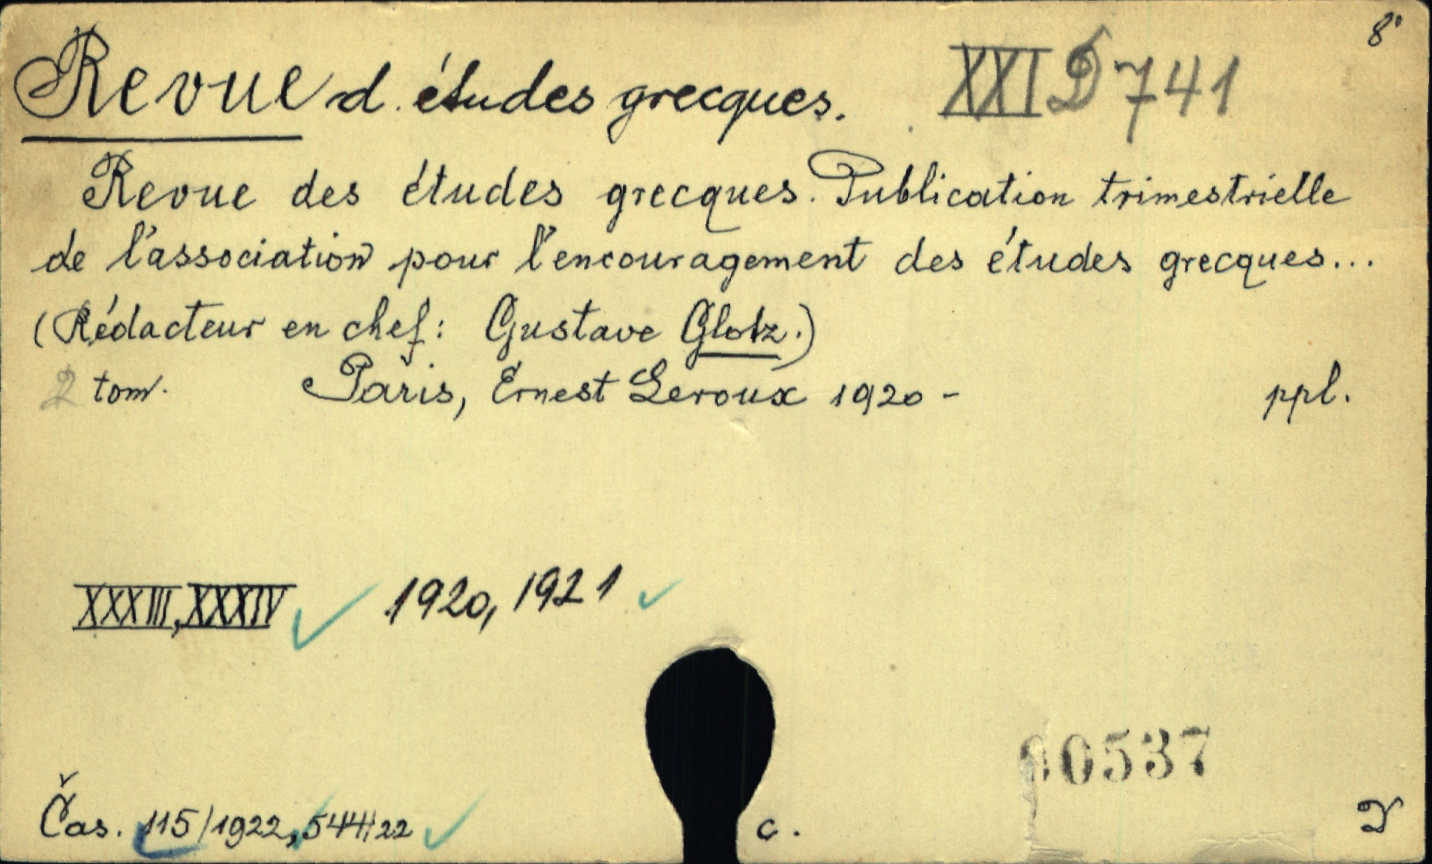 8°
Revue d. études grecques. XXI D 741
Revue des études grecques. Publication trimestrielle
de l'association pour l'encouragement des études grecques...
(Rédacteur en chef: Gustave Glotz.)
2 tom. Paris, Ernest Leroux 1920 - ppl.
XXXIII, XXXIV 1920, 1921
0537
Čas. 115/1922, 544/22 c.